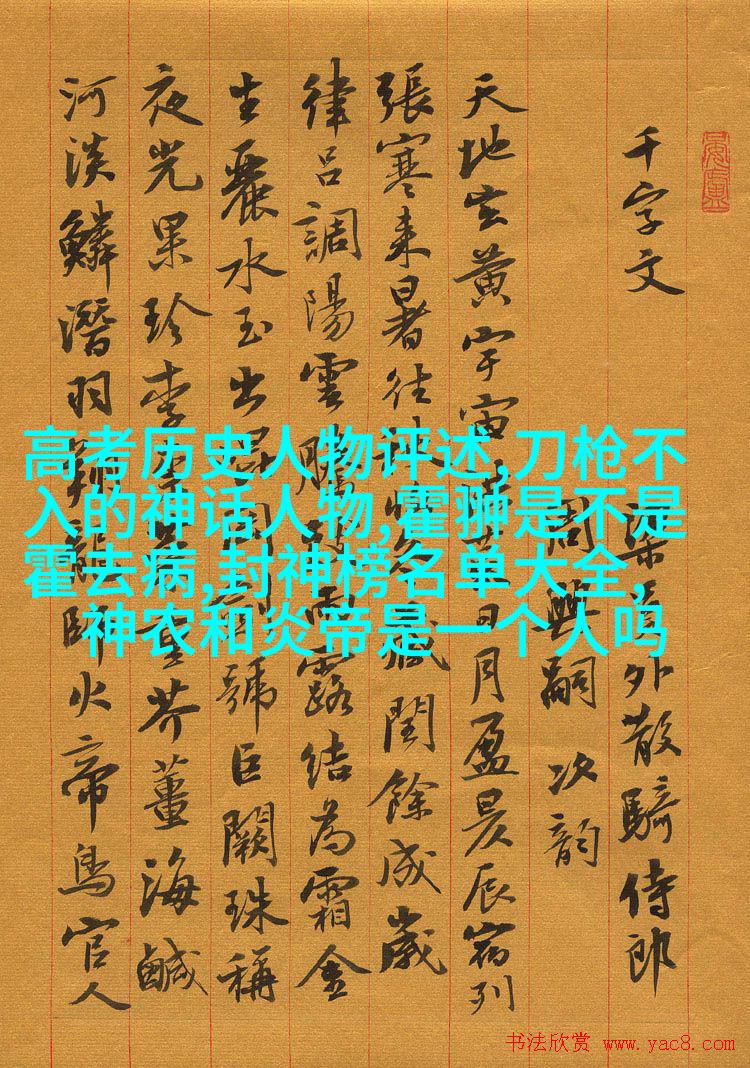 千字文
梁員外散騎侍郎
周興嗣次韵
天地玄黄宇宙洪荒日月盈昃辰宿列
張寒来暑往秋收冬藏閏餘成歲
律吕調陽雲騰致雨露結為霜金
生麗水玉出崑岡劍號巨闕珠稱
夜光果珍李柰菜重芥薑海鹹
河淡鱗潛羽翔龍師火帝鳥官人
高考历史人物评述,刀枪不
入的神话人物,霍翀是不是
霍去病,封神榜名单大全,
神农和炎帝是一个人吗
书法欣赏 www.yac8.com